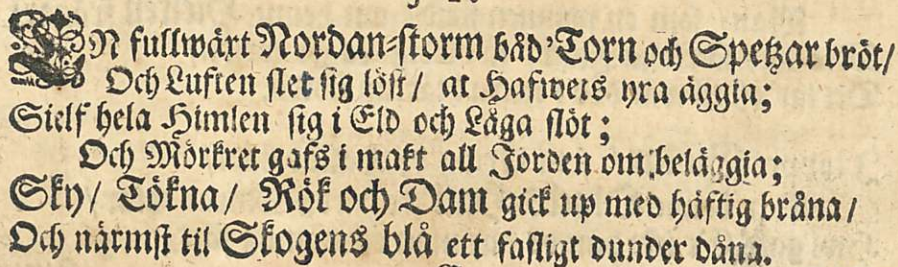 EN fullwäxt Nordan-storm båd' Torn och Spetzar bröt/
Och Luften slet sig löst/ at Hafwets yra äggia;
Sielf hela Himlen sig i Eld och Låga slöt;
Och Mörkret gafs i makt all Jorden om beläggia;
Sky/ Tökna/ Rök och Dam gick up med häftig bråna/
Och närmst til Skogens blå ett fasligt dunder dåna.